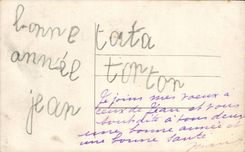 bonne
année
jean
tata
tonton
Je joins mes voeux à
ceux de Jean et vous
souhaite à tous deux
une bonne année et
une bonne santé